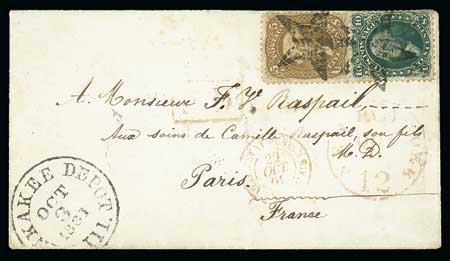 A Monsieur F. V. Raspail,
Aux soins de Camille Raspail, son fils
M.D.
Paris.
France
KAKEE DEPOT ILL
OCT
3
1861
22
OCT
61
12
10